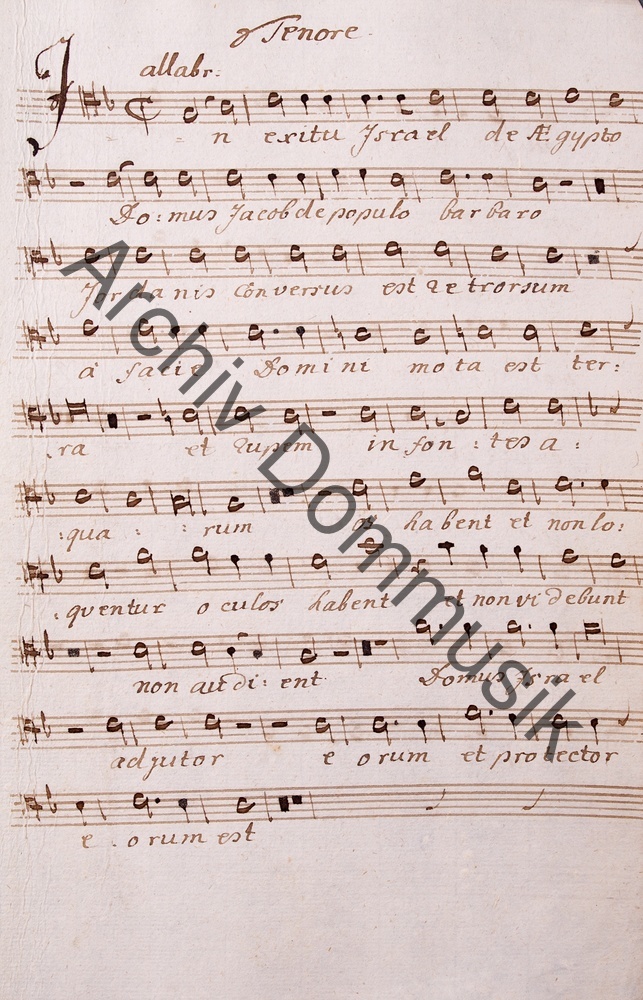 Tenore
allabr:
In exitu Israel de Ægypto
Do: mus Jacob de populo barbaro
Jordanis Conversus est Retrorsum
à facie Domini mota est ter:
ra et Rupem in fon: tes a:
:qua: rum os habent et non lo:
:quentur oculos habent et non videbunt
non audi: ent Domus Israel
adjutor eorum et protector
e. orum est
Archiv Dommusik